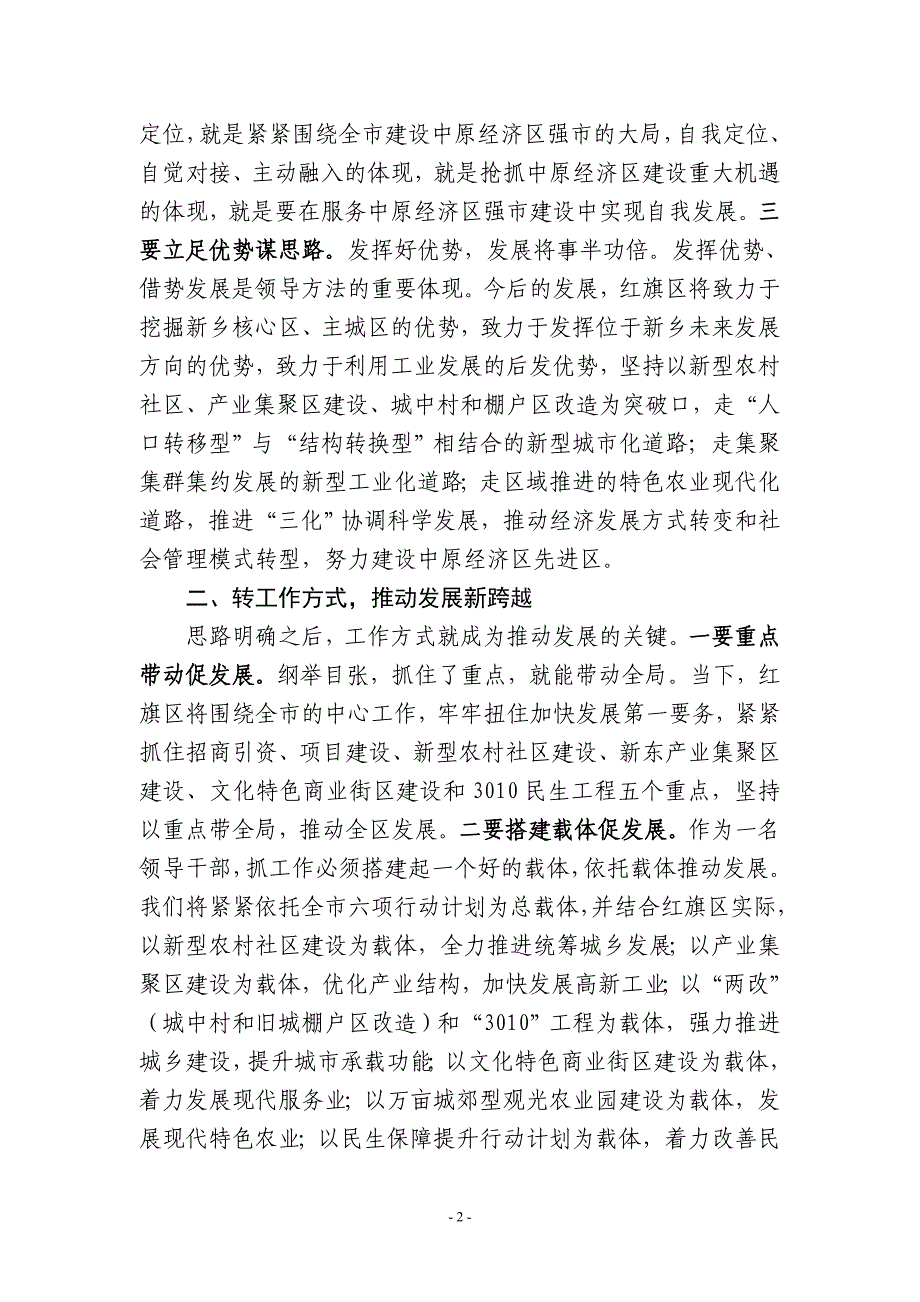 定位，就是紧紧围绕全市建设中原经济区强市的大局，自我定位、
自觉对接、主动融入的体现，就是抢抓中原经济区建设重大机遇
的体现，就是要在服务中原经济区强市建设中实现自我发展。三
要立足优势谋思路。发挥好优势，发展将事半功倍。发挥优势、
借势发展是领导方法的重要体现。今后的发展，红旗区将致力于
挖掘新乡核心区、主城区的优势，致力于发挥位于新乡未来发展
方向的优势，致力于利用工业发展的后发优势，坚持以新型农村
社区、产业集聚区建设、城中村和棚户区改造为突破口，走“人
口转移型”与“结构转换型”相结合的新型城市化道路；走集聚
集群集约发展的新型工业化道路；走区域推进的特色农业现代化
道路，推进“三化”协调科学发展，推动经济发展方式转变和社
会管理模式转型，努力建设中原经济区先进区。
二、转工作方式，推动发展新跨越
思路明确之后，工作方式就成为推动发展的关键。一要重点
带动促发展。纲举目张，抓住了重点，就能带动全局。当下，红
旗区将围绕全市的中心工作，牢牢扭住加快发展第一要务，紧紧
抓住招商引资、项目建设、新型农村社区建设、新东产业集聚区
建设、文化特色商业街区建设和3010民生工程五个重点，坚持
以重点带全局，推动全区发展。二要搭建载体促发展。作为一名
领导干部，抓工作必须搭建起一个好的载体，依托载体推动发展。
我们将紧紧依托全市六项行动计划为总载体，并结合红旗区实际，
以新型农村社区建设为载体，全力推进统筹城乡发展；以产业集
聚区建设为载体，优化产业结构，加快发展高新工业；以“两改”
（城中村和旧城棚户区改造）和“3010”工程为载体，强力推进
城乡建设，提升城市承载功能；以文化特色商业街区建设为载体，
着力发展现代服务业；以万亩城郊型观光农业园建设为载体，发
展现代特色农业；以民生保障提升行动计划为载体，着力改善民
- 2 -